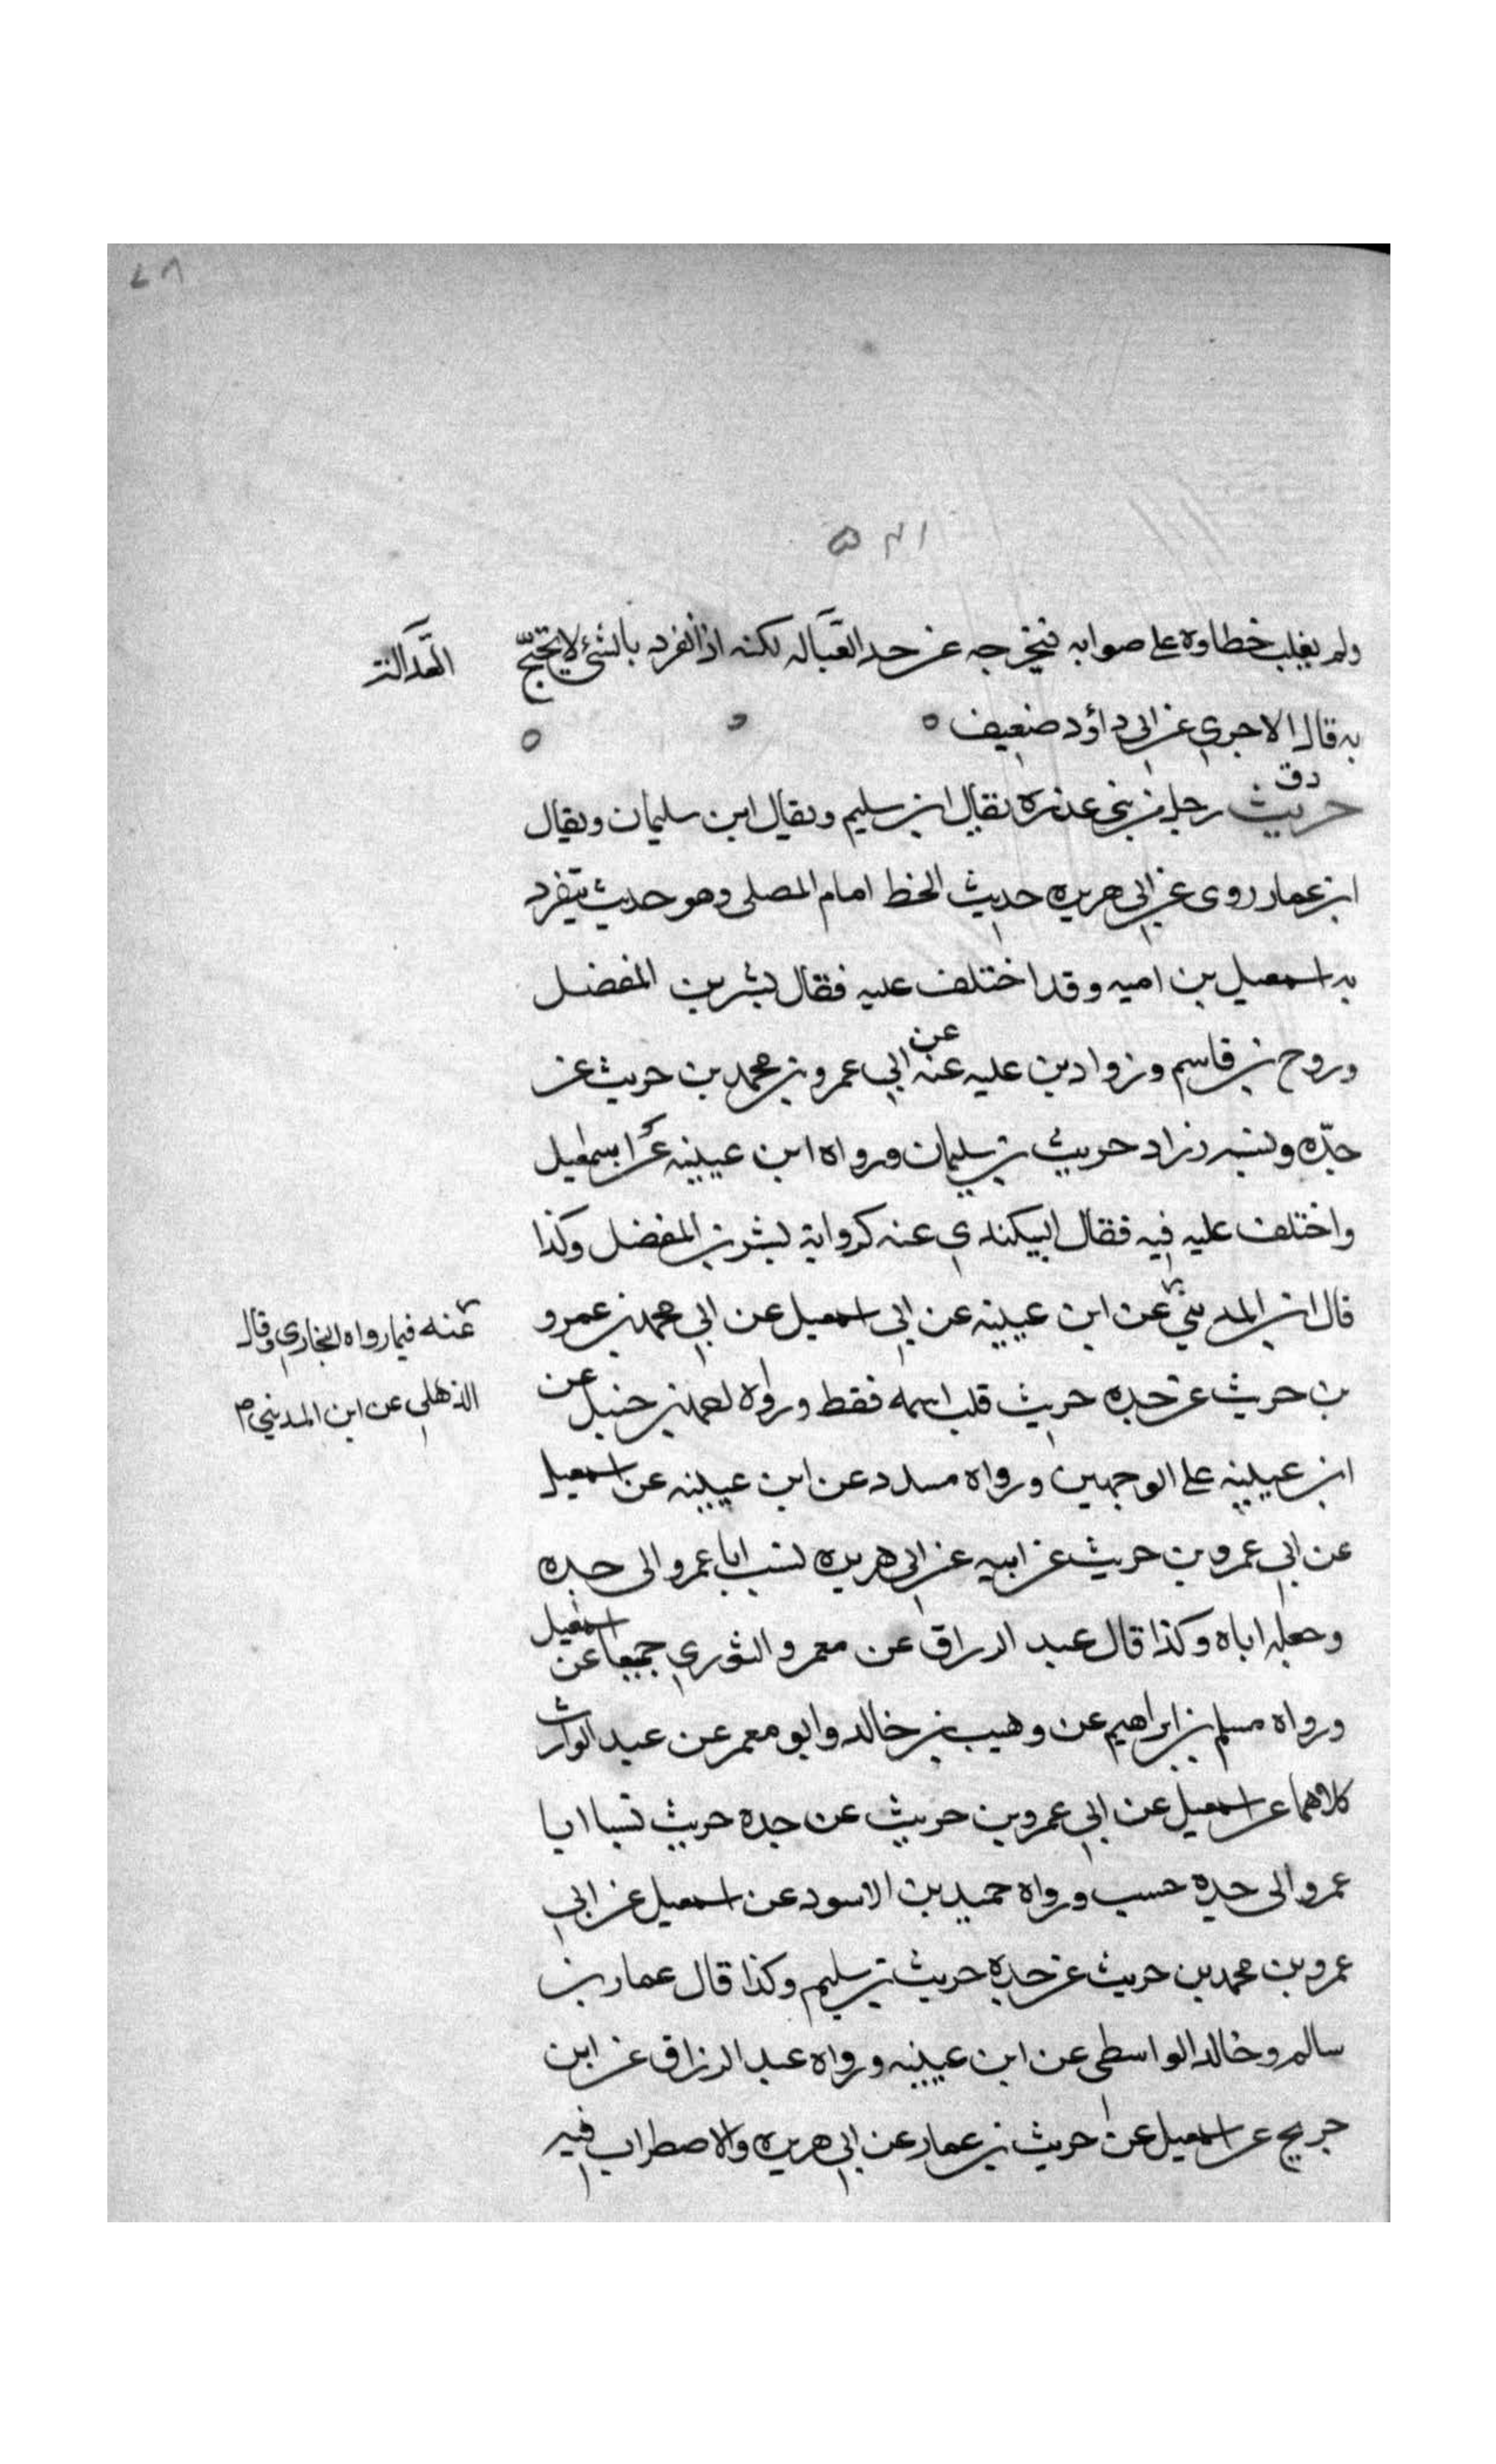 ٧٨
٥٣١
ولم يغلب خطاوه على صوابه فيخرجه عن حد القبالہ لكنه اذا انفرد بالشئ لا يحتج
العدالت
به قال الاجري عن ابي داؤد ضعيف ٥
دق
حريث رجل من بني عذره يقال ابن سليم ويقال ابن سليمان ويقال
ابن عمار روى عن ابي هريره حديث الخط امام المصلى وهو حديث يتفرد
به اسمعيل بن اميه وقد اختلف عليه فقال بشر بن المفضل
وروح بن قاسم وزواد بن عليه عنه عن ابي عمرو بن محمد بن حريث عن
جدّه ونسبه زاد حريث بن سليمان ورواه ابن عيينه عن اسمعيل
واختلف عليه فيه فقال البيكندي عنه كرواية بشر بن المفضل وكذا
قال ابن المديني عن ابن عيينه عن ابي اسمعيل عن ابي محمد بن عمرو
عنه فيما رواه البخاري وقال
الذهلي عن ابن المديني م
بن حريث عن جده حريث قلب اسمه فقط ورواه احمد بن حنبل عن
ابن عيينه على الوجهين ورواه مسدد عن ابن عيينه عن اسمعيل
عن ابي عمرو بن حريث عن ابيه عن ابي هريره نسب ابا عمرو الى جده
وجعله اباه وكذا قال عبد الرزاق عن معمر والثوري جميعا عن اسمعيل
ورواه مسلم بن ابراهيم عن وهيب بن خالد وابو معمر عن عبد الوارث
كلاهما عن اسمعيل عن ابي عمرو بن حريث عن جده حريث نسبا ابا
عمرو الى جده حسب ورواه حميد بن الاسود عن اسمعيل عن ابي
عمرو بن محمد بن حريث عن جده حريث بن سليم وكذا قال عمار بن
سالم وخالد الواسطى عن ابن عيينه ورواه عبد الرزاق عن ابن
جريج عن اسمعيل عن حريث بن عمار عن ابي هريره والاضطراب فيه